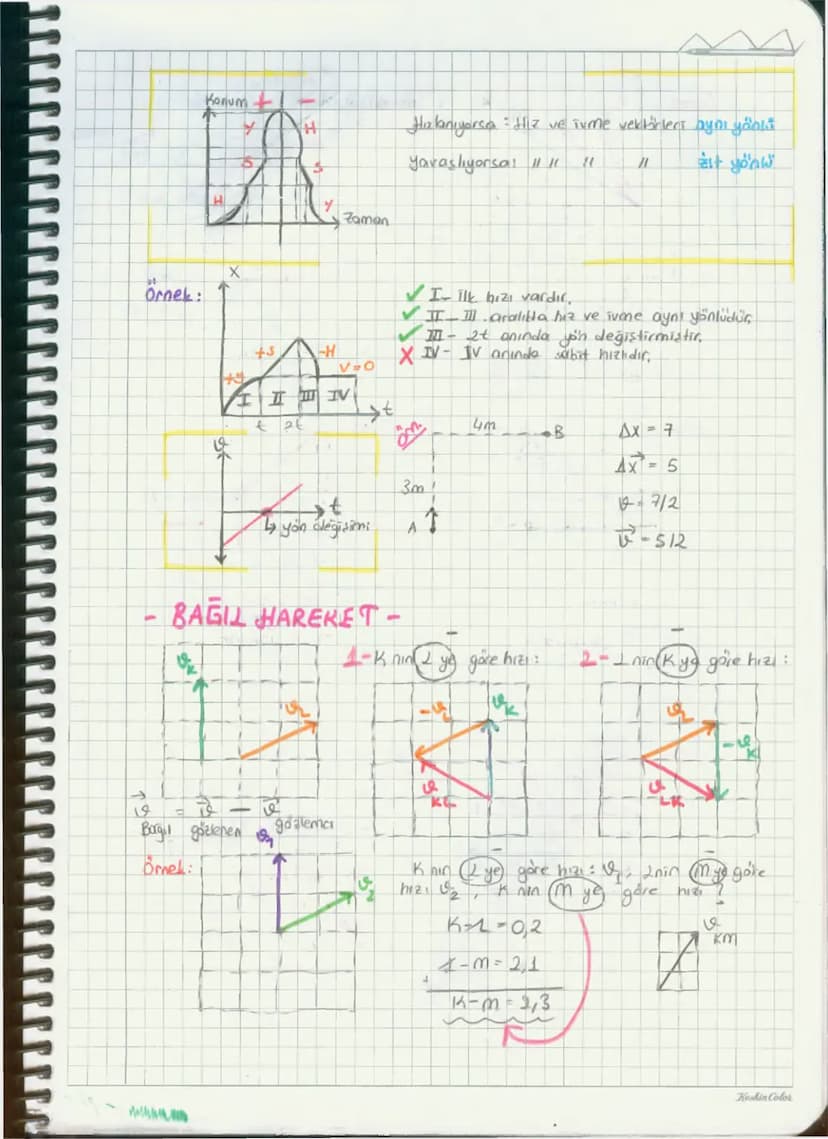 Konum + -
Y H
S S
H Y
Zaman
Hızlanıyorsa : Hız ve ivme vektörleri aynı yönlü
Yavaşlıyorsa: " " " " zıt yönlü
Örnek:
X
+S -H
+Y V=0
I II III IV
t 2t t
✓ I- İlk hızı vardır.
✓ II- III. aralıkta hız ve ivme aynı yönlüdür.
✓ III- 2t anında yön değiştirmiştir.
X IV- IV anında sabit hızlıdır.
ϑ
t
↳ yön değişimi
Örn
4m
B
3m
A
Δx = 7
Δx⃗ = 5
ϑ = 7/2
ϑ⃗ = 5/2
- BAĞIL HAREKET -
ϑK
ϑL
1- K nın L ye göre hızı:
-
-ϑL
ϑK
ϑKL
2- L nin K ya göre hızı:
-
ϑL
-ϑK
ϑLK
ϑ⃗ = ϑ⃗ - ϑ⃗
Bağıl gözlenen gözlemci
Örnek:
ϑ1
ϑ2
-
K nın L ye göre hızı: ϑ1, L nin M ye göre
hızı ϑ2, K nın M ye göre hızı?
K-L = 0,2
L-M = 2,1
+
K-M = 2,3
ϑKM
Keskin Color